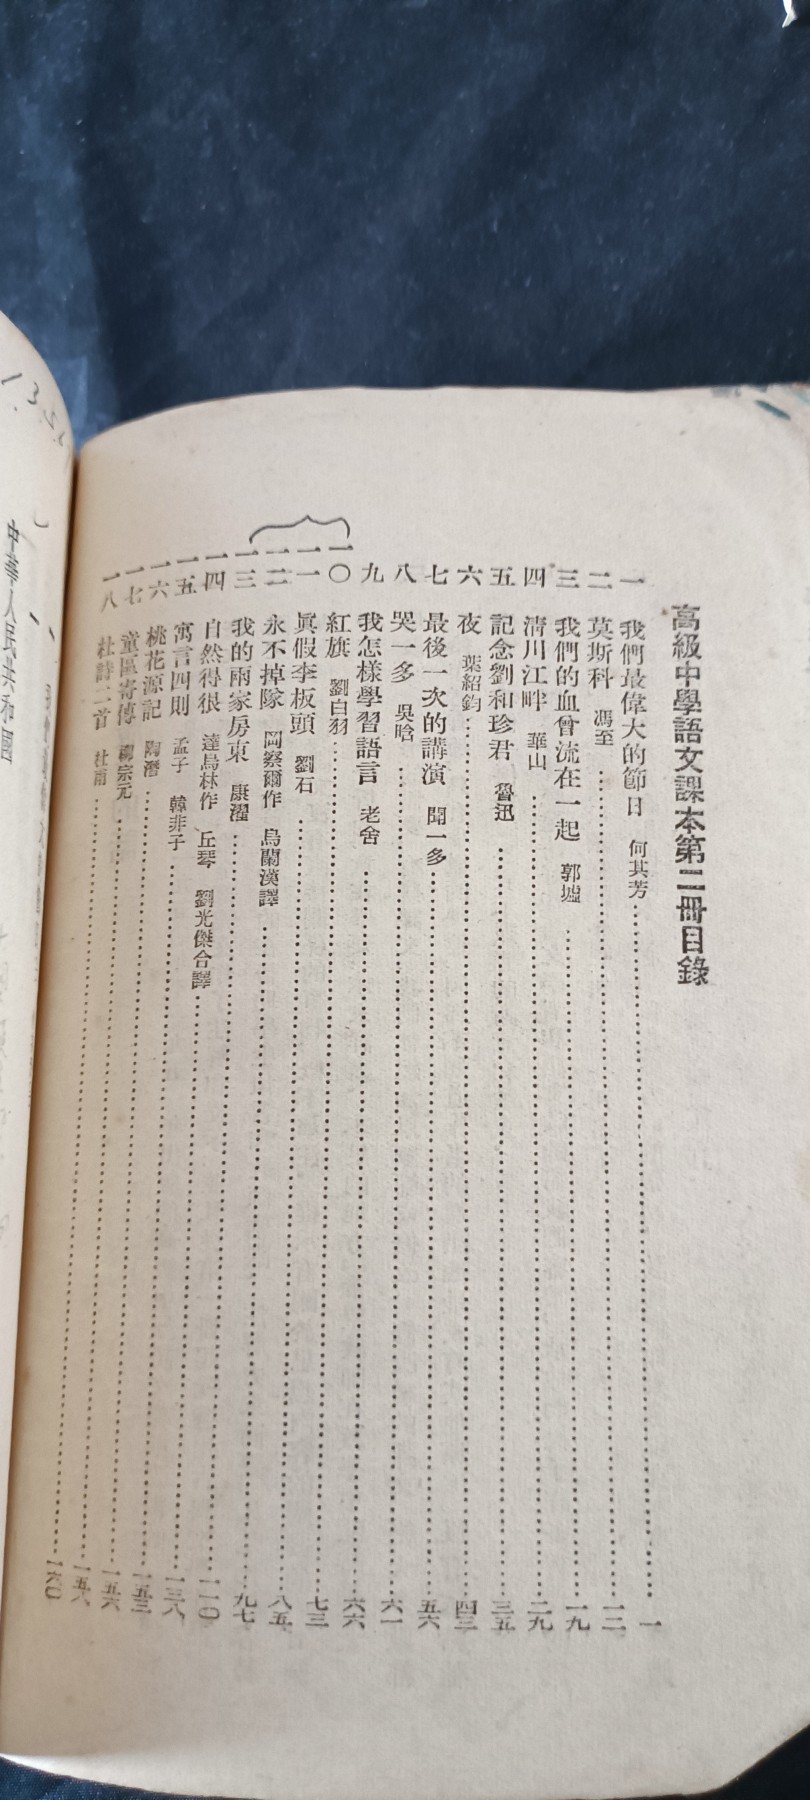 高級中學語文課本第二冊目錄
一 我們最偉大的節日 何其芳……一
二 莫斯科 馮至……一二
三 我們的血曾流在一起 郭墟……一九
四 清川江畔 華山……二九
五 記念劉和珍君 魯迅……三五
六 夜 葉紹鈞……四三
七 最後一次的講演 聞一多……五六
八 哭一多 吳晗……六一
九 我怎樣學習語言 老舍……六六
一〇 紅旗 劉白羽……七三
一一 眞假李板頭 劉石……八五
一二 永不掉隊 岡察爾作 烏蘭漢譯……九七
一三 我的兩家房東 康濯……一一〇
一四 自然得很 達烏林作 丘琴 劉光傑合譯……一三八
一五 寓言四則 孟子 韓非子……一五三
一六 桃花源記 陶潛……一五六
一七 童區寄傳 柳宗元……一五八
一八 杜詩二首 杜甫……一六〇
中華人民共和國